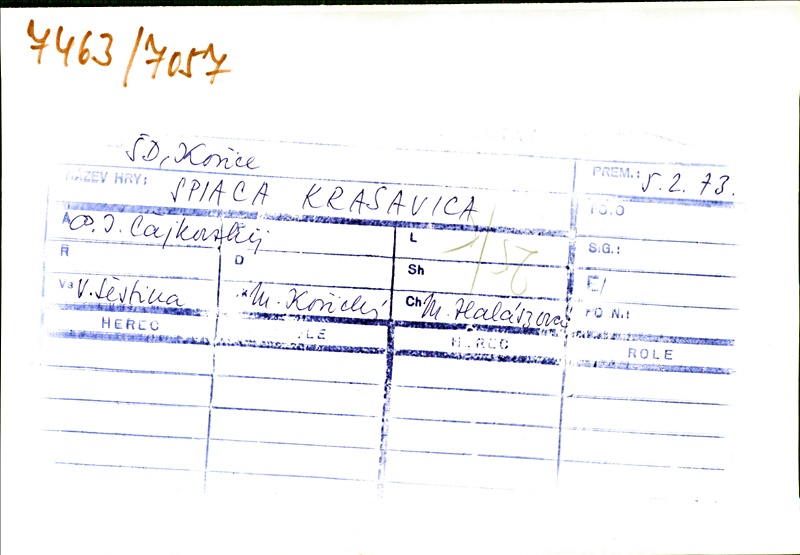 7463/7057
ŠD, Košice
NÁZEV HRY: SPIACA KRÁSAVICA PREM.: 5.2.73.
A P. I. Čajkovskij L
S.G.:
R D Sh
V. Šestina M. Košický Ch M. Halászová FO N.:
HEREC ROLE HEREC ROLE